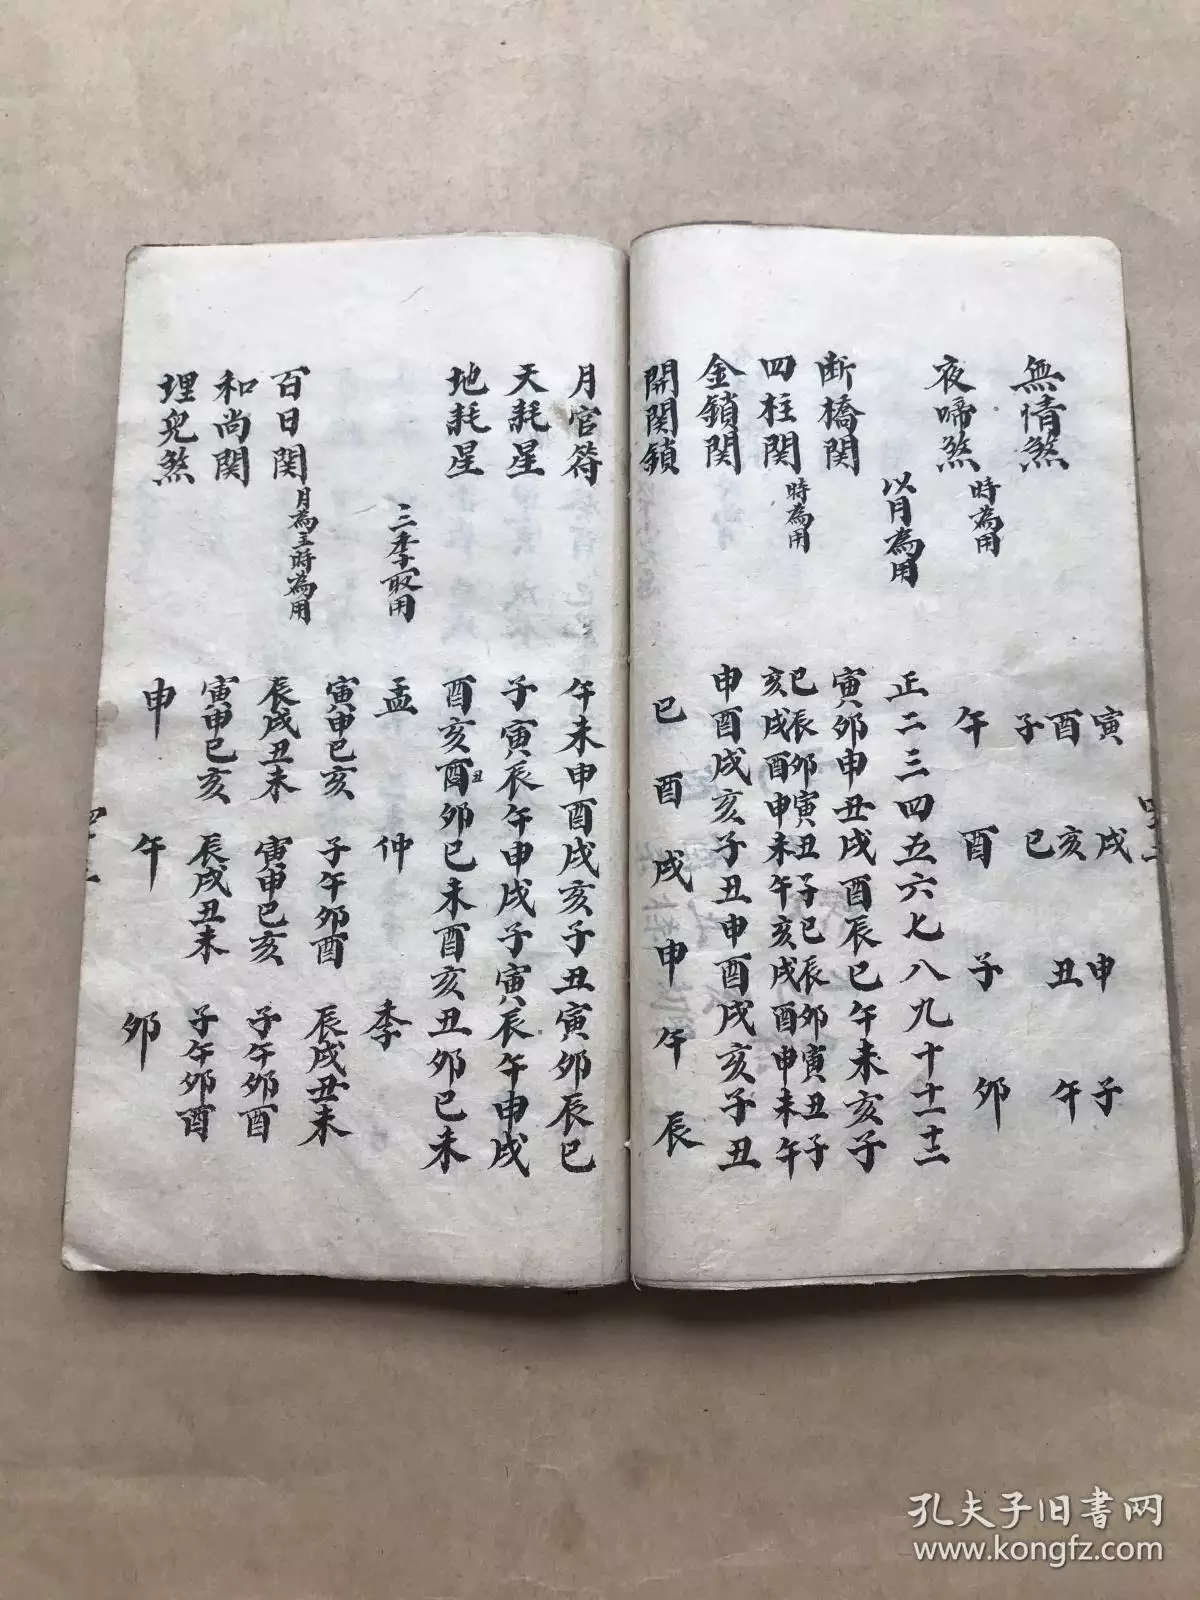 無情煞 寅戌申子
酉亥丑午
子巳
夜啼煞 時為用 午酉子卯
以月為用 正二三四五六七八九十十一十二
断橋関 寅卯申丑戌酉辰巳午未亥子
四柱関 時為用 巳辰卯寅丑子巳辰卯寅丑子
亥戌酉申未午亥戌酉申未午
金鎖関 申酉戌亥子丑申酉戌亥子丑
開関鎖 巳酉戌申午辰
月官符 午未申酉戌亥子丑寅卯辰巳
天耗星 子寅辰午申戌子寅辰午申戌
地耗星 酉亥酉丑卯巳未酉亥丑卯巳未
三季取用 孟仲季
寅申巳亥 子午卯酉 辰戌丑未
百日関 月為主時為用 辰戌丑未 寅申巳亥 子午卯酉
和尚関 寅申巳亥 辰戌丑未 子午卯酉
埋兒煞 申午卯
孔夫子旧書网
www.kongfz.com